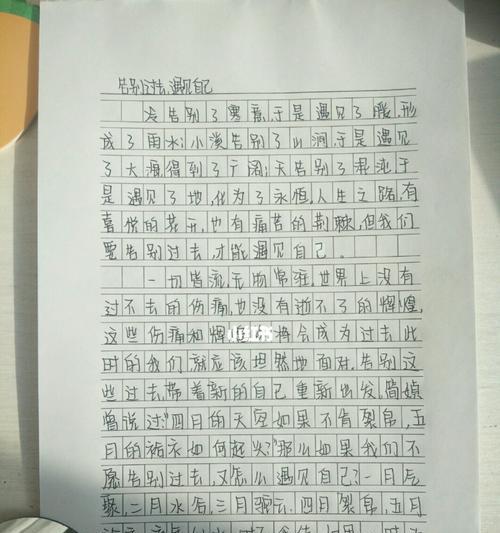 告别过去,遇见自己
告别了雾霭,于是遇见了 形
成了雨水;小溪告别了山涧,于是遇见
了大海,得到了广阔;天告别了混沌于
是遇见了地,化为了永恒。人生之路,有
喜悦的花开,也有痛苦的荆棘,但我们
要告别过去,才能遇见自己。
一切皆流,无物常驻。世界上没有
过不去的伤痛,也没有逝不了的辉煌,
这些伤痛和辉 将会成为过去此
时的我们,就应该坦然地面对,告别这
些过去,带着新的自己重新出发。简媜
曾说过:“四月的天空如果不肯裂帛,五
月的袷衣如何起火?”那么如果我们不
愿告别过去,又怎么遇见自己?一月气
聚,二月水谷,三月骆云,四月裂帛,五月